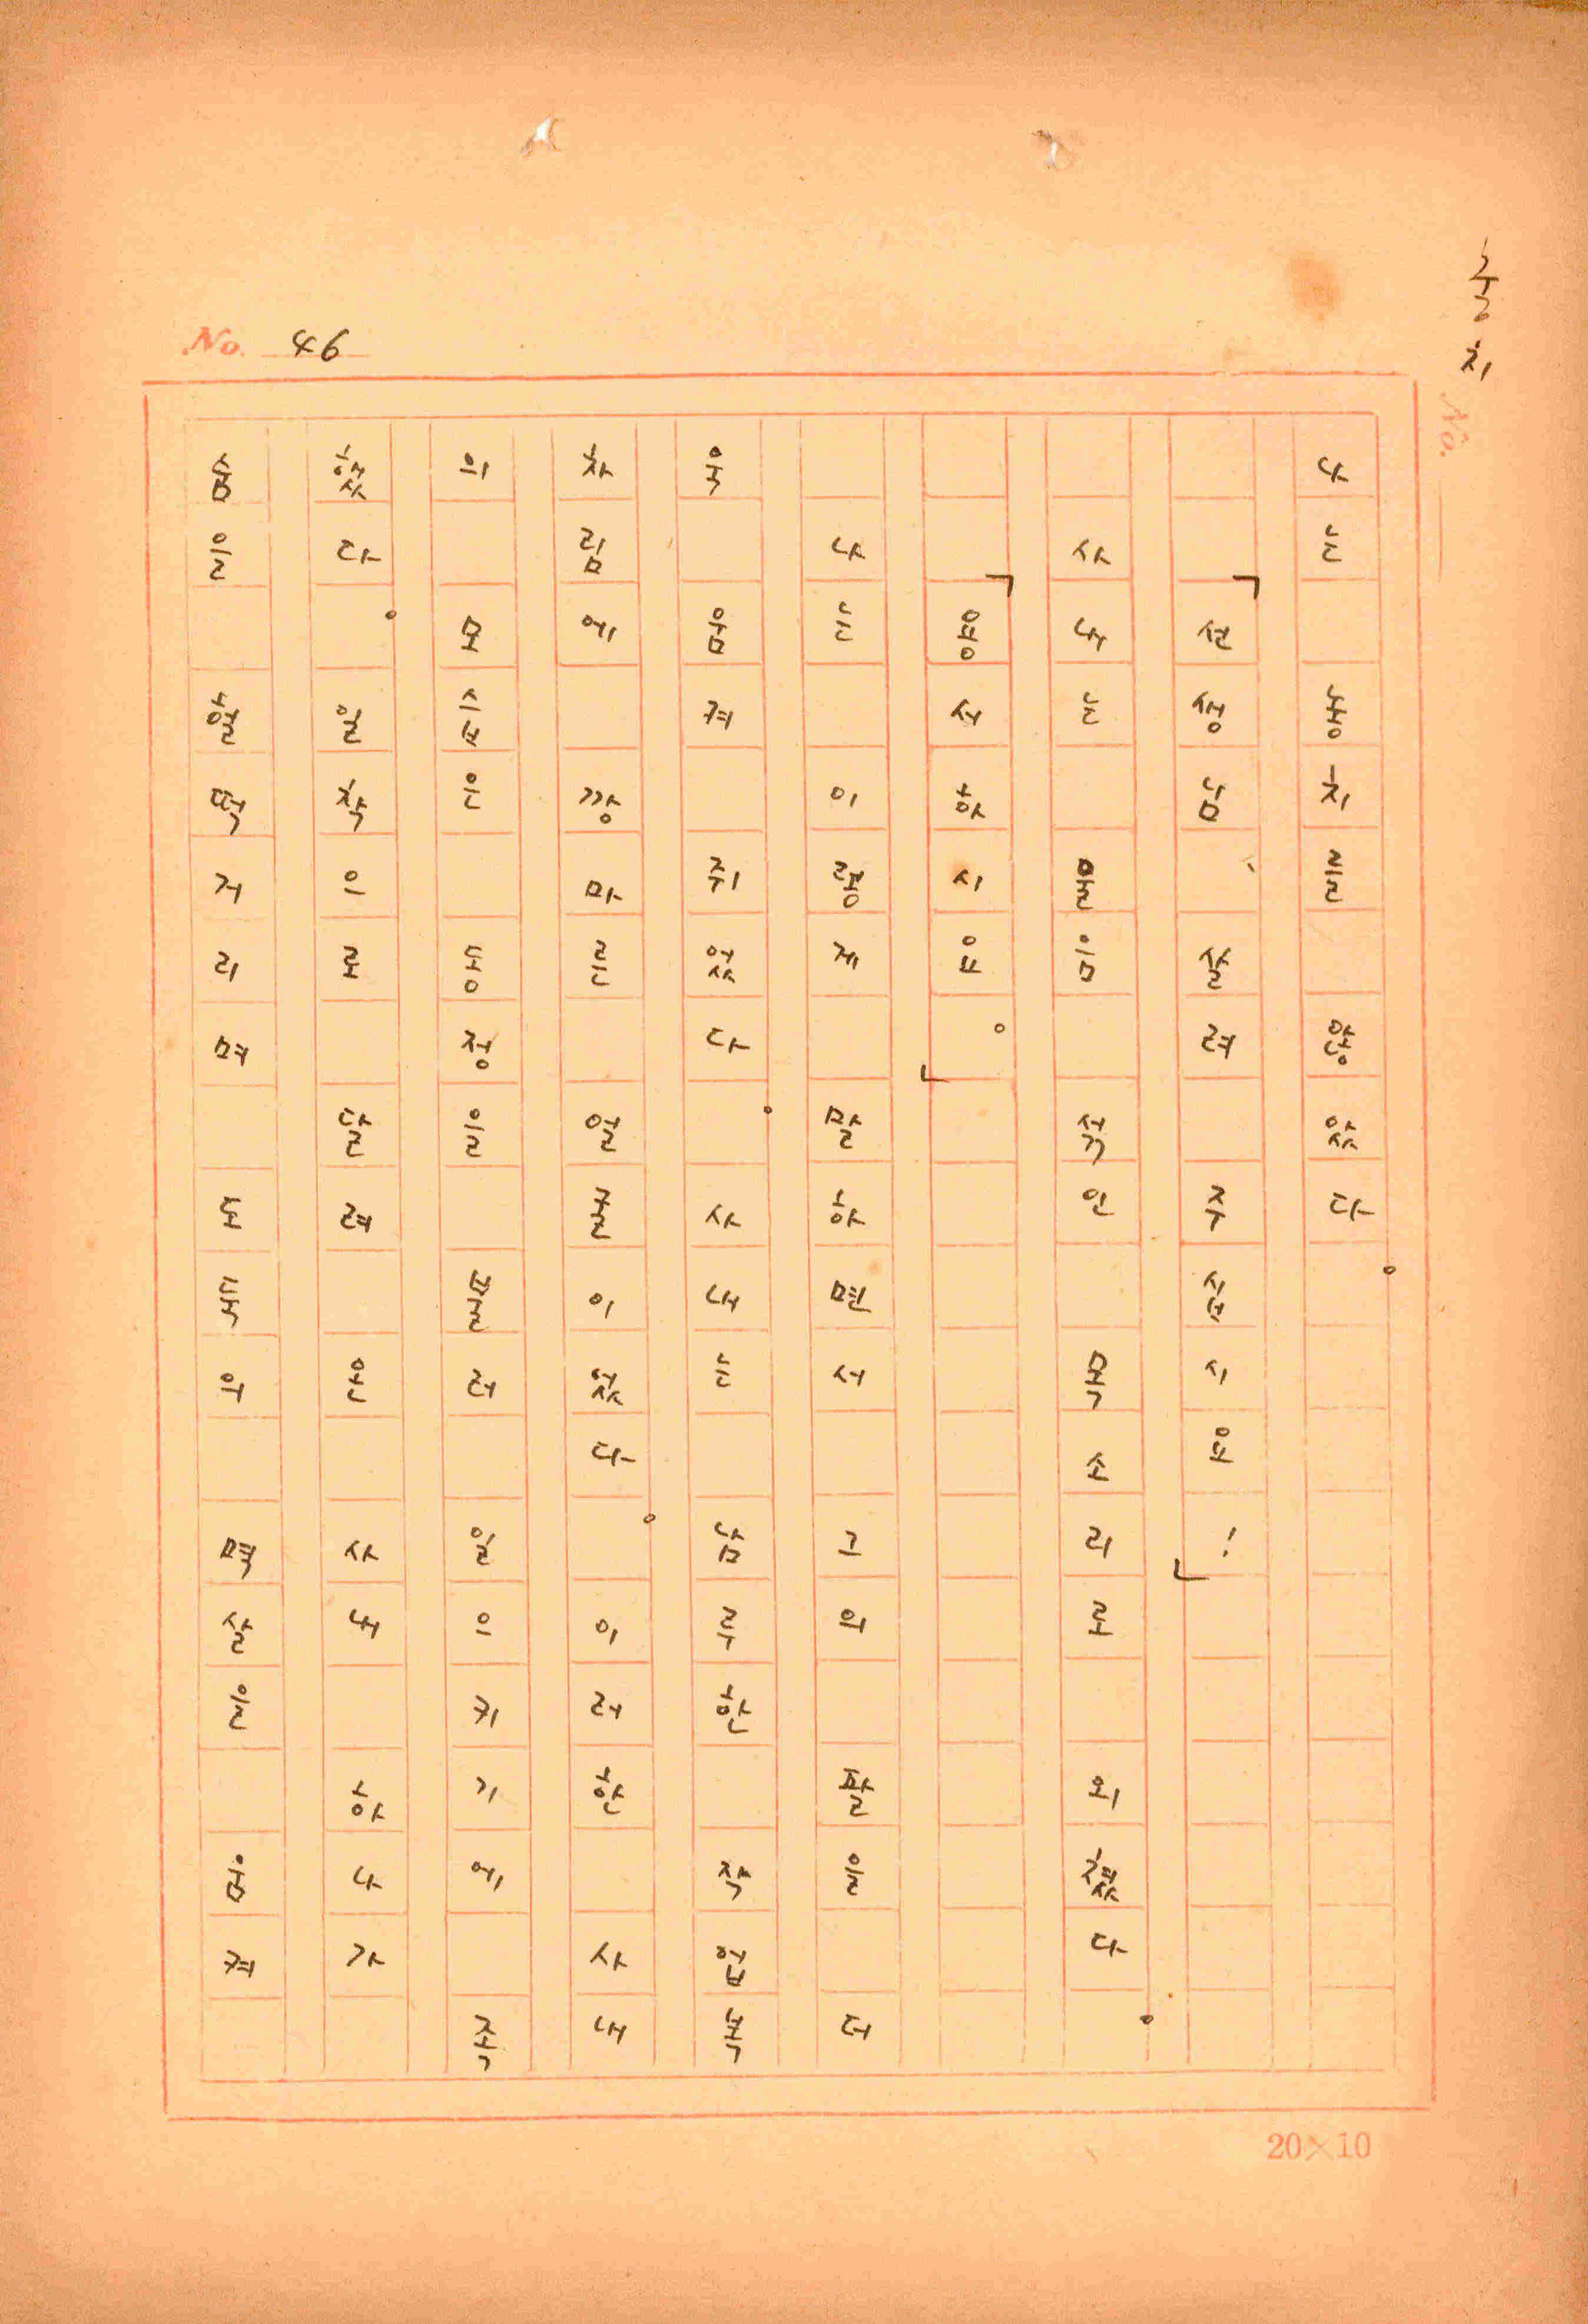 No. 46
나는 눙치를 않았다。
「선생님、 살려 주십시요!」
사내는 울음 섞인 목소리로 외쳤다。
「용서하시요。」
나는 이렇게 말하면서 그의 팔을 더
욱 움켜 쥐었다。 사내는 남루한 작업복
차림에 깡마른 얼굴이었다。 이러한 사내
의 모습은 동정을 불러 일으키기에 족
했다。 일착으로 달려 온 사내 하나가
숨을 헐떡거리며 도둑의 멱살을 움켜
20×10